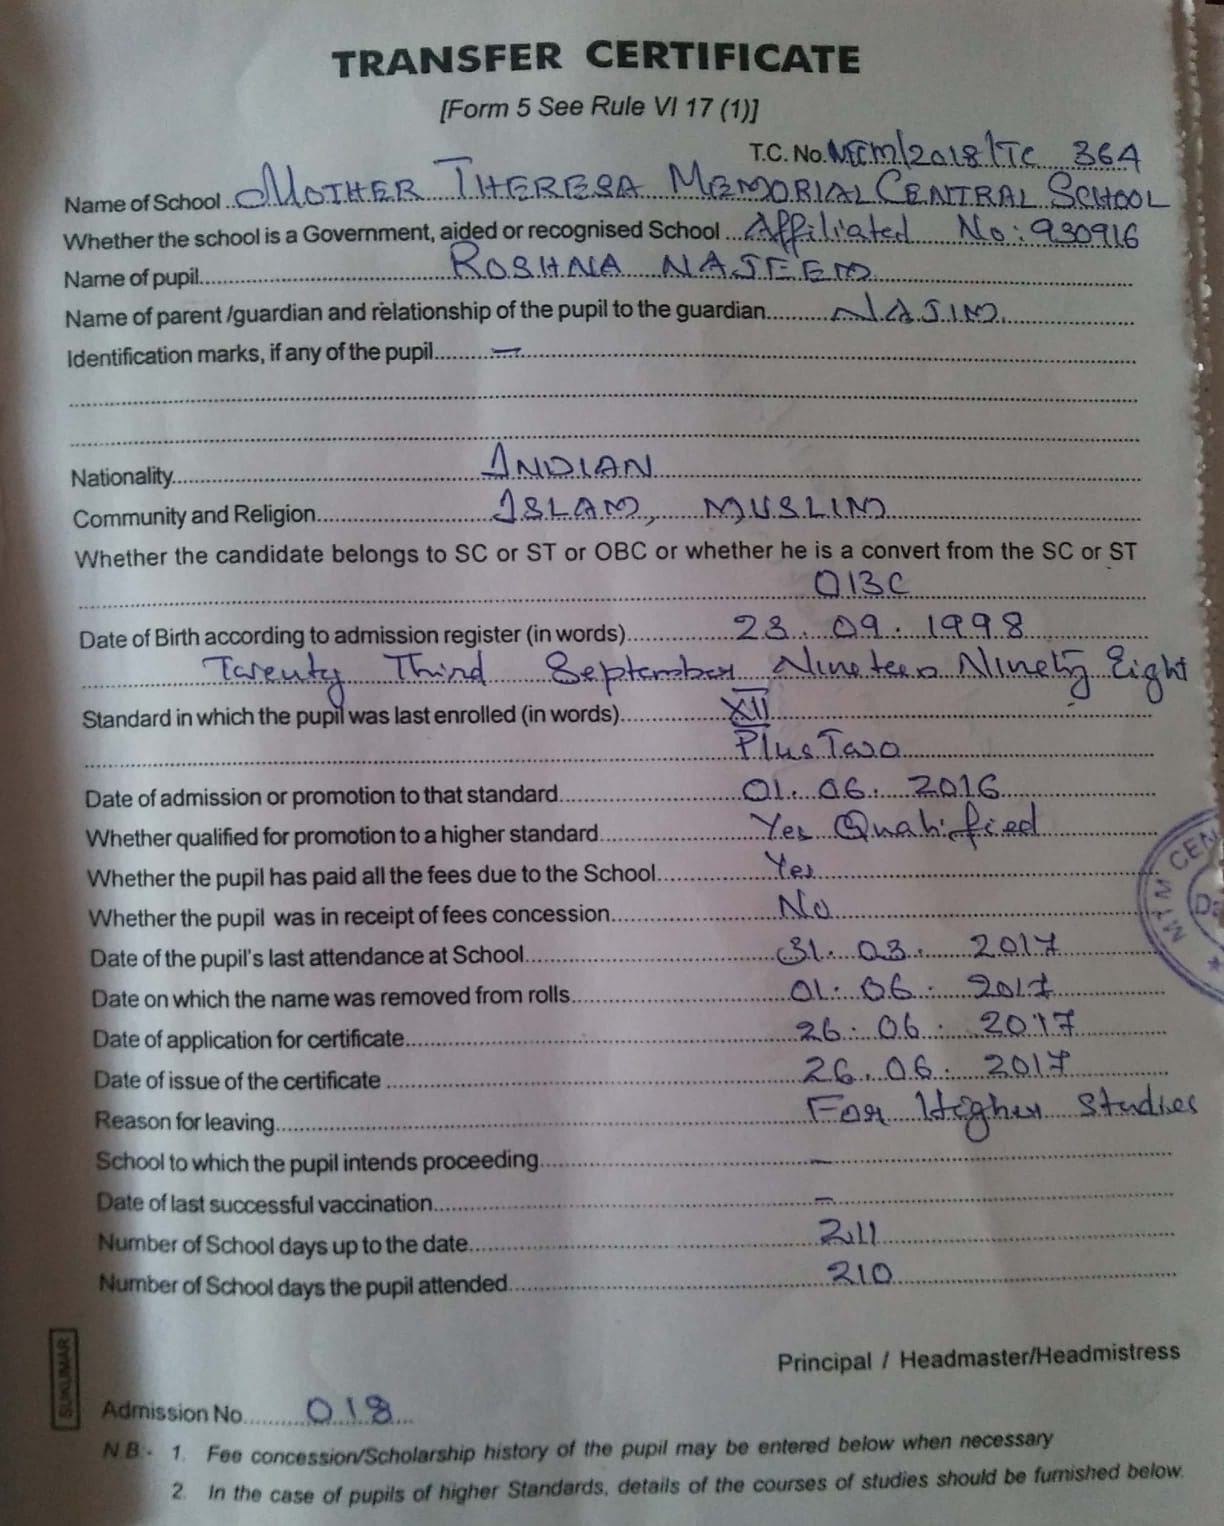 TRANSFER CERTIFICATE
[Form 5 See Rule VI 17 (1)]
T.C. No. MTCM/2018/TC 364
Name of School MOTHER THERESA MEMORIAL CENTRAL SCHOOL
Whether the school is a Government, aided or recognised School Affiliated No: 930916
Name of pupil ROSHNA NASEEM
Name of parent /guardian and relationship of the pupil to the guardian NASIM
Identification marks, if any of the pupil —
Nationality INDIAN
Community and Religion ISLAM, MUSLIM
Whether the candidate belongs to SC or ST or OBC or whether he is a convert from the SC or ST
OBC
Date of Birth according to admission register (in words) 23.09.1998
Twenty Third September Nineteen Ninety Eight
Standard in which the pupil was last enrolled (in words) XII
Plus Two
Date of admission or promotion to that standard 01.06.2016
Whether qualified for promotion to a higher standard Yes Qualified
Whether the pupil has paid all the fees due to the School Yes
Whether the pupil was in receipt of fees concession No
Date of the pupil's last attendance at School 31.03.2017
Date on which the name was removed from rolls 01.06.2017
Date of application for certificate 26.06.2017
Date of issue of the certificate 26.06.2017
Reason for leaving For Higher Studies
School to which the pupil intends proceeding —
Date of last successful vaccination —
Number of School days up to the date 211
Number of School days the pupil attended 210
MTM CEN
Principal / Headmaster/Headmistress
SUKUMAR
Admission No. 018
N.B:- 1. Fee concession/Scholarship history of the pupil may be entered below when necessary
2. In the case of pupils of higher Standards, details of the courses of studies should be furnished below.